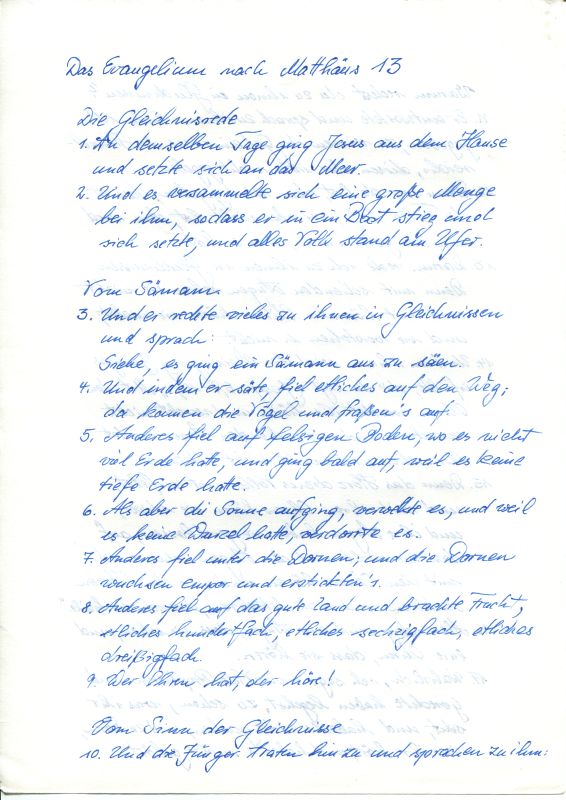 Das Evangelium nach Matthäus 13
Die Gleichnisrede
1. An demselben Tage ging Jesus aus dem Hause
und setzte sich an das Meer.
2. Und es versammelte sich eine große Menge
bei ihm, sodass er in ein Boot stieg und
sich setzte, und alles Volk stand am Ufer.
Vom Sämann
3. Und er redete vieles zu ihnen in Gleichnissen
und sprach:
Siehe, es ging ein Sämann aus zu säen.
4. Und indem er säte, fiel etliches auf den Weg;
da kamen die Vögel und fraßen's auf.
5. Anderes fiel auf felsigen Boden, wo es nicht
viel Erde hatte, und ging bald auf, weil es keine
tiefe Erde hatte.
6. Als aber die Sonne aufging, verwelkte es, und weil
es keine Wurzel hatte, verdorrte es.
7. Anderes fiel unter die Dornen; und die Dornen
wuchsen empor und erstickten's.
8. Anderes fiel auf das gute Land und brachte Frucht,
etliches hundertfach, etliches sechzigfach, etliches
dreißigfach.
9. Wer Ohren hat, der höre!
Vom Sinn der Gleichnisse
10. Und die Jünger traten hinzu und sprachen zu ihm: